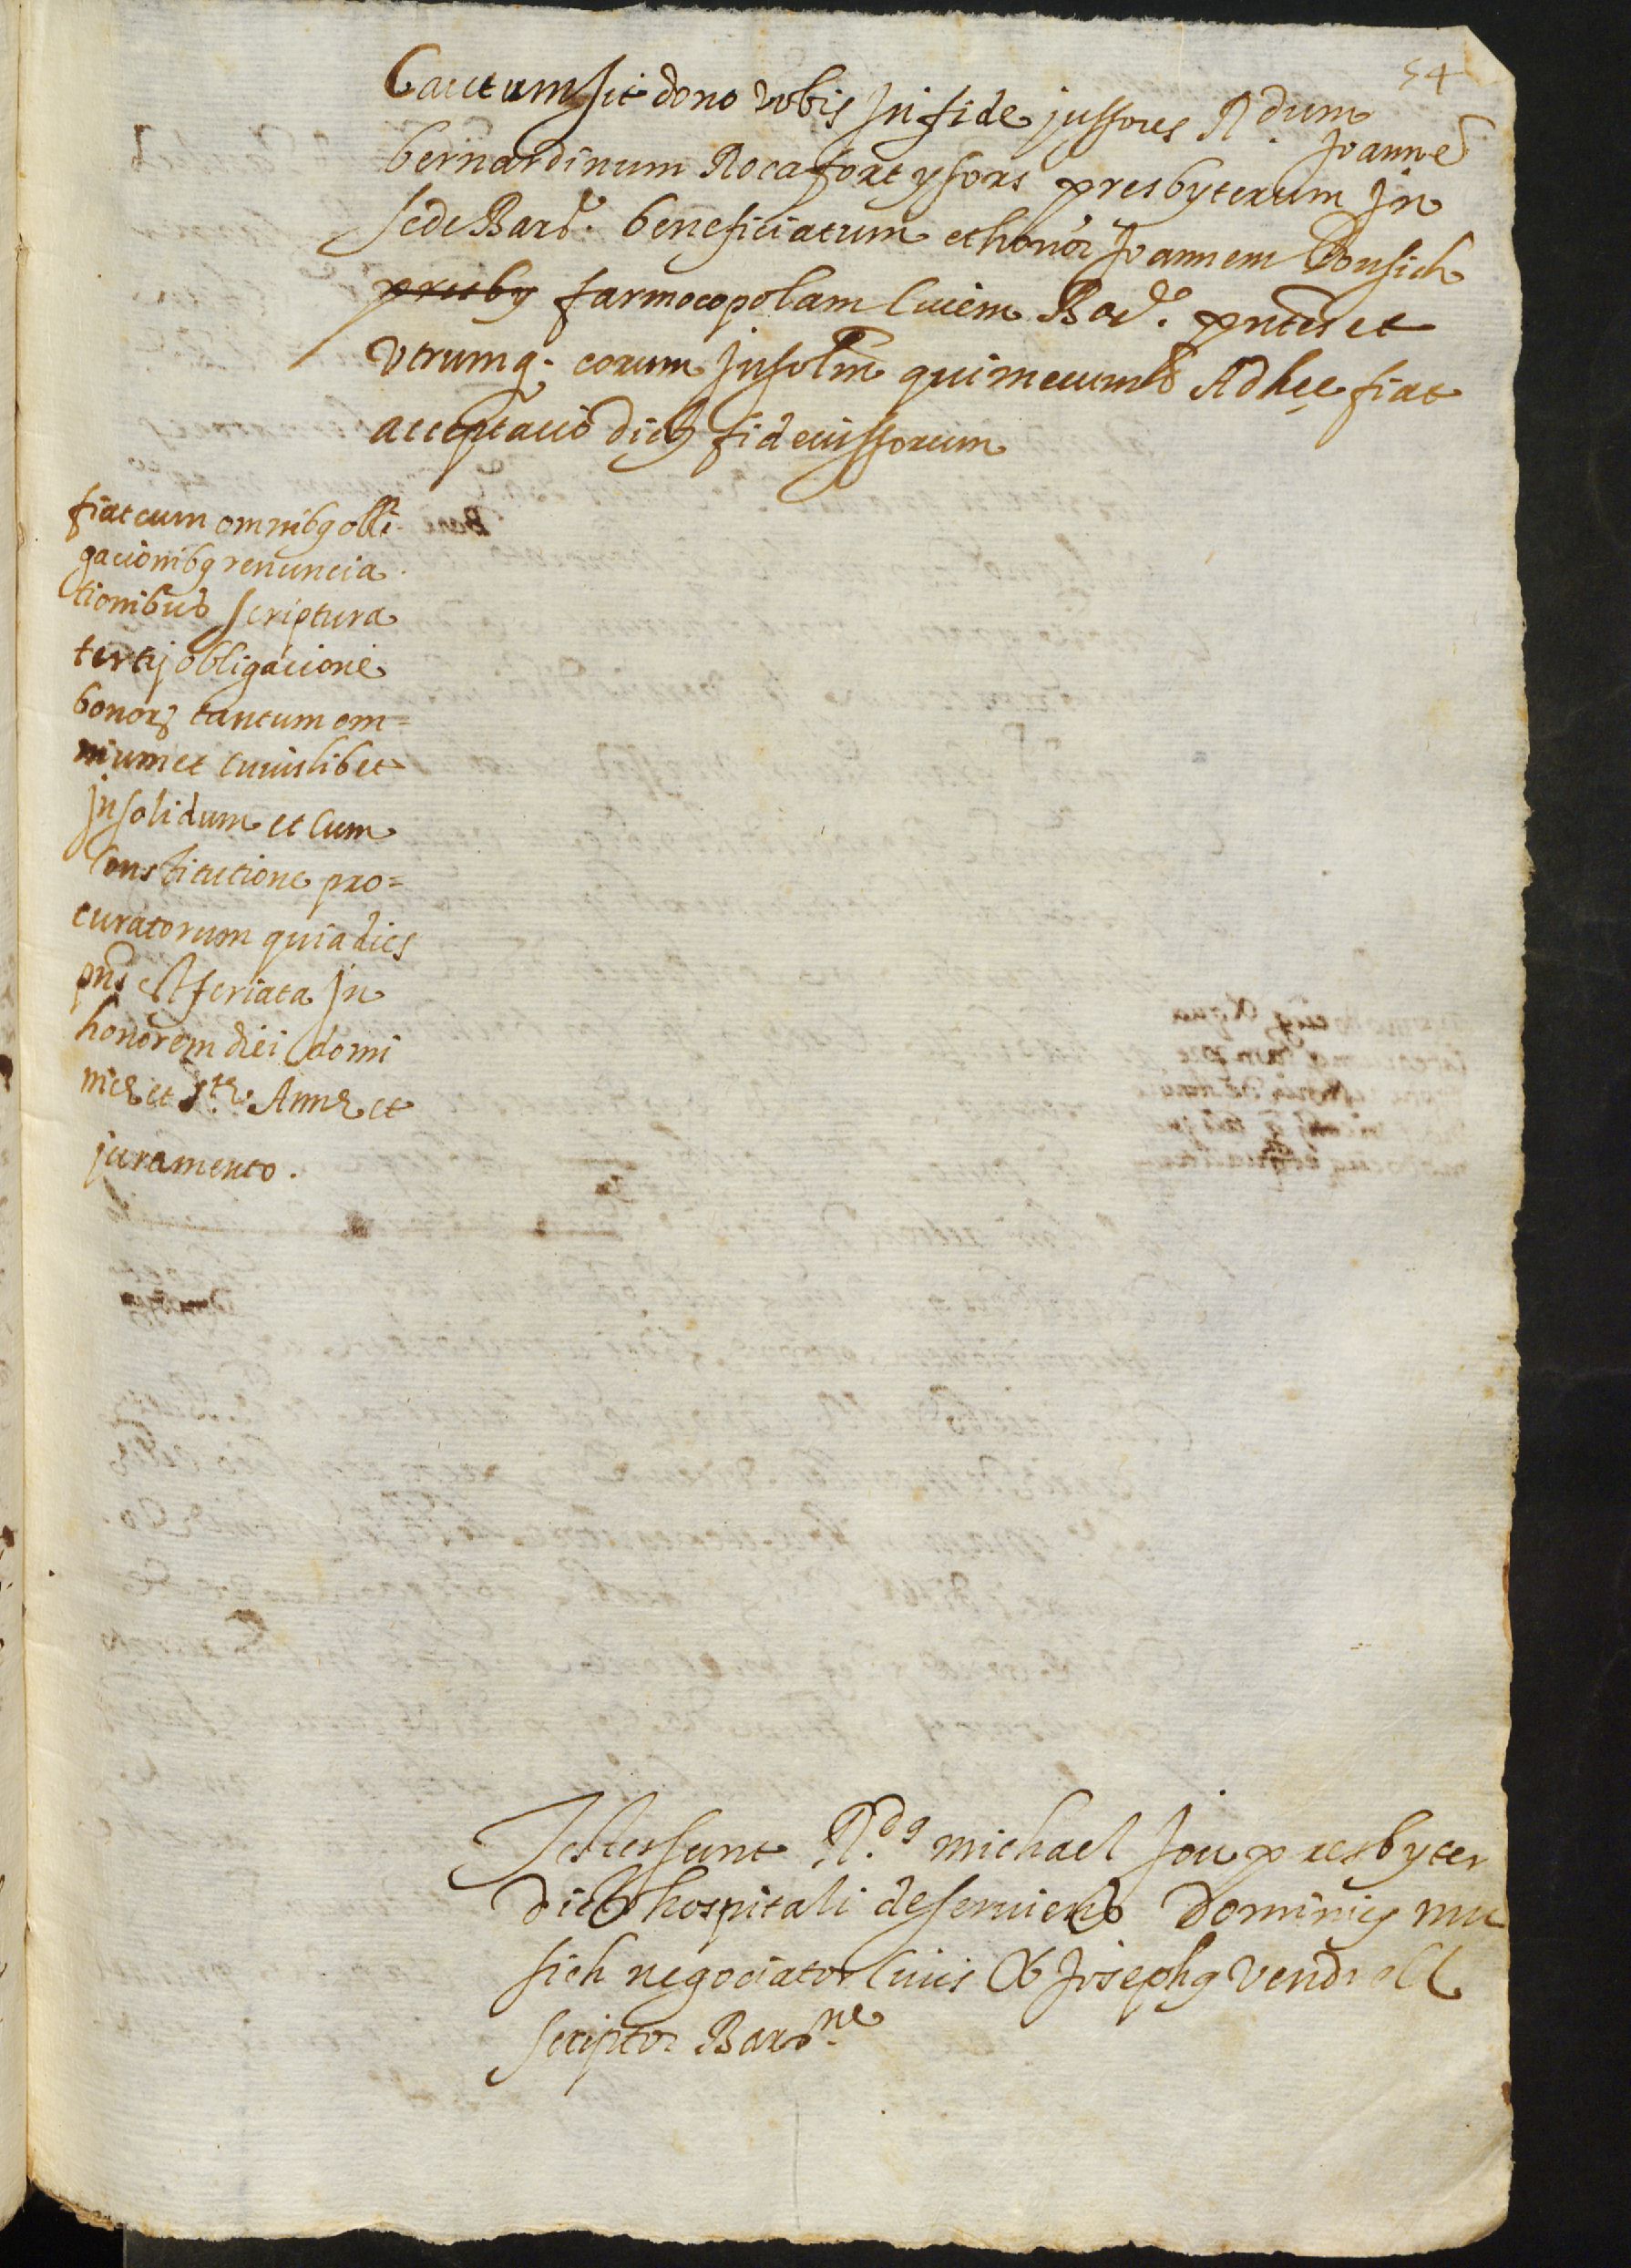 54
Cautum sit dono vobis in fide jussores Rdum Joanne
bernardinum Rocafort y sors presbyterum in
sede Barne. beneficiatum et honor Joannem
presby farmocopolam Civem Barne. pntes et
vtrumq. eorum insolm qui mecum Ad hec fiat
acceptatio dictor fideiussorum
fiat cum omnibq obli
gacionibq renuncia
tionibus scriptura
tertij obligacione
bonorz tantum om=
nium et cuiuslibet
insolidum et cum
Constitutione pro=
curatorum quia dies
pns est feriata in
honorem diei domi
nicę et stę. Annę et
juramento.
Testes sunt Rdq michael Jou presbyter
dicto hospitali deseruiens Dominicq mu
sich negociator Ciuis & Josephq vendrell
scriptor Barne